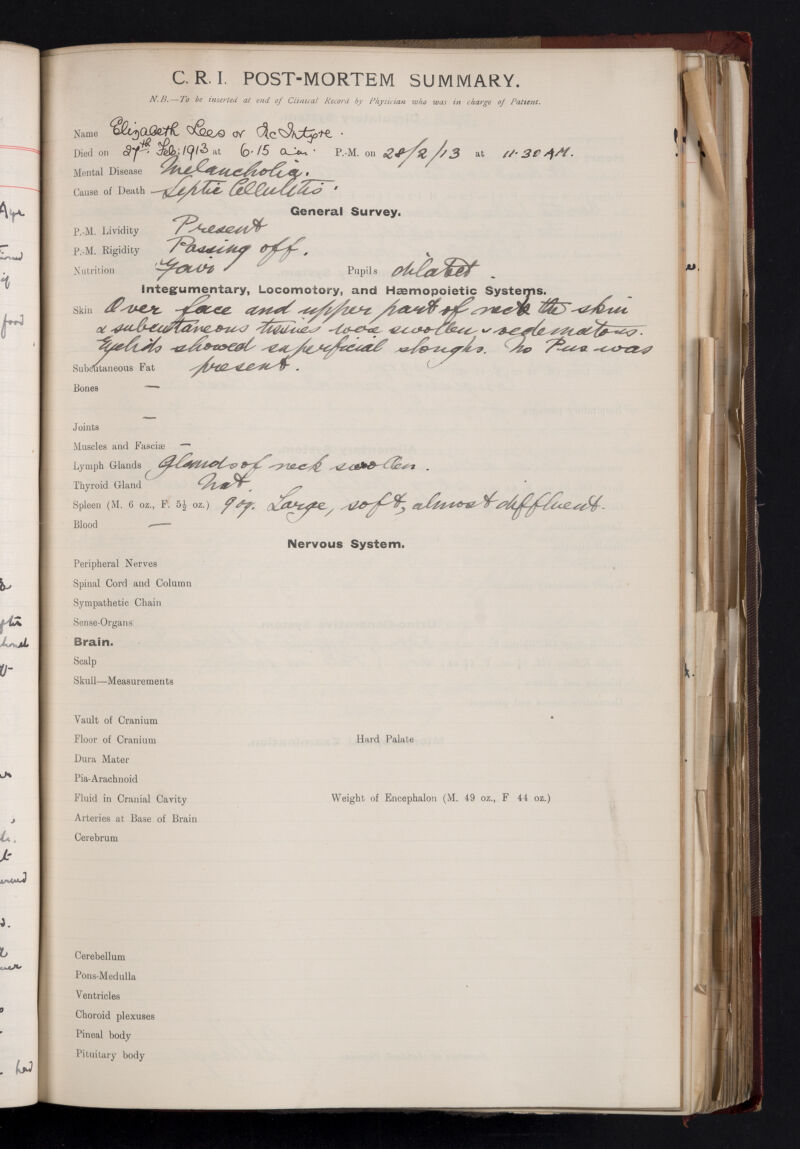 C. R. I. POST-MORTEM SUMMARY.
N.B.—To be inserted at end of Clinical Record by Physician who was in charge of Patient.
Name Elizabeth Lees or McIntyre.
Died on 27th Feb: 1913 at 6.15 a.m. P.-M. on 28/2/13 at 11.30 AM.
Mental Disease Melancholia.
Cause of Death Septic Cellulitis.
General Survey.
P.-M. Lividity Present
P.-M. Rigidity Passing off.
Nutrition Fair Pupils dilated.
Integumentary, Locomotory, and Hæmopoietic Systems.
Skin Over face and upper part of neck the skin
& subcutaneous tissues were swollen & oedematous.
Eyelids showed superficial sloughs. No Pus was
Subcutaneous Fat present.
Bones —
Joints —
Muscles and Fasciæ —
Lymph Glands Glands of neck swollen.
Thyroid Gland Nat.
Spleen (M. 6 oz., F. 5½ oz.) 9 oz. Large, soft, almost diffluent.
Blood —
Nervous System.
Peripheral Nerves
Spinal Cord and Column
Sympathetic Chain
Sense-Organs
Brain.
Scalp
Skull—Measurements
Vault of Cranium
Floor of Cranium Hard Palate
Dura Mater
Pia-Arachnoid
Fluid in Cranial Cavity Weight of Encephalon (M. 49 oz., F 44 oz.)
Arteries at Base of Brain
Cerebrum
Cerebellum
Pons-Medulla
Ventricles
Choroid plexuses
Pineal body
Pituitary body